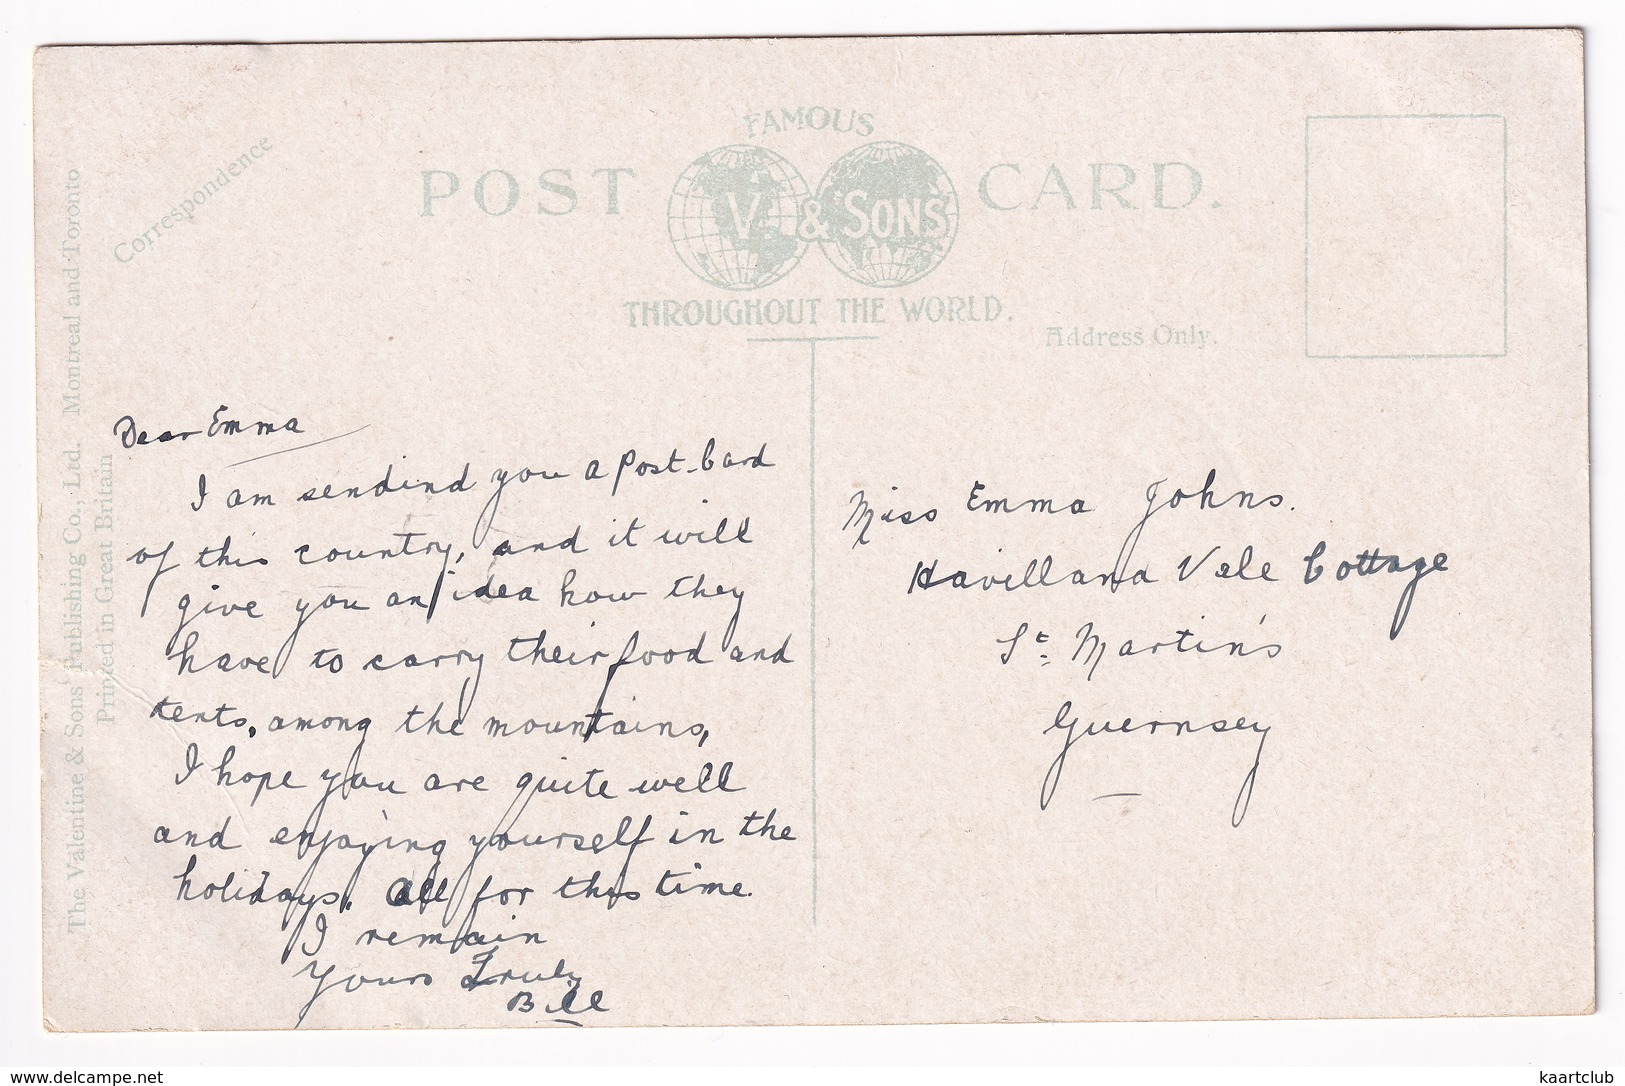 FAMOUS
POST CARD.
V. & SONS
THROUGHOUT THE WORLD.
Correspondence
Address Only.
The Valentine & Sons' Publishing Co., Ltd. Montreal and Toronto
Printed in Great Britain
Dear Emma
I am sendind you a Post-Card
of this country, and it will
give you an idea how they
have to carry their food and
tents, among the mountains,
I hope you are quite well
and enjoying yourself in the
holidays. All for this time.
I remain
Yours Truly
Bill
Miss Emma Johns.
Havilland Vale Cottage
St. Martin's
Guernsey
www.delcampe.net
kaartclub